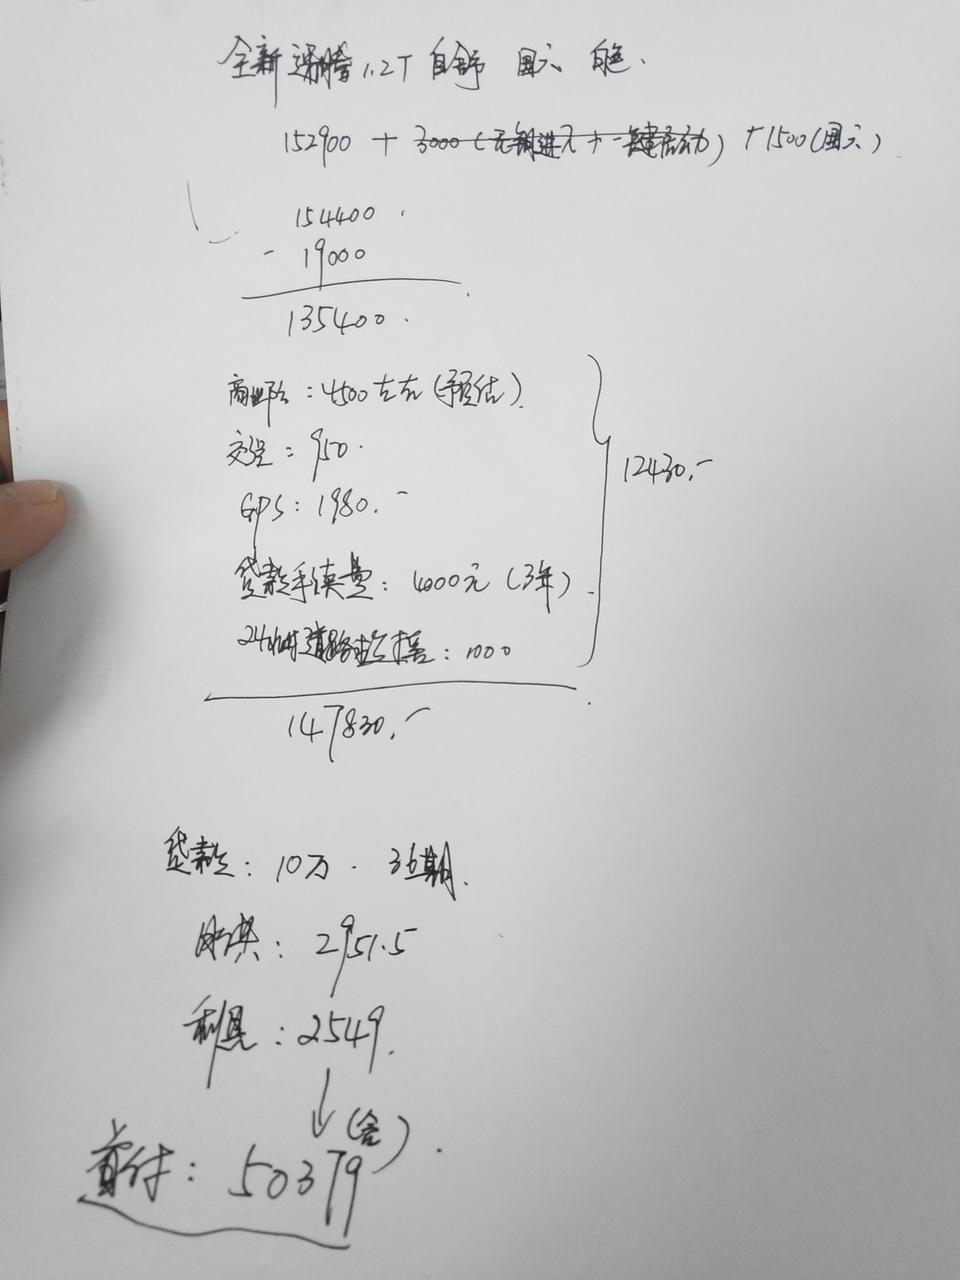 全新速腾1.2T 自舒 国六 白色.
152900 + 3000(无钥进入+一键启动) +1500(国六)
154400.
- 19000
135400.
商业险:4500左右(预估).
交强:950.
GPS:1980.-
12430.-
贷款手续费:4000元(3年).
24小时道路救援:1000
147830.-
贷款:10万. 36期.
月供:2951.5
利息:2549.
↓(含).
首付:50379